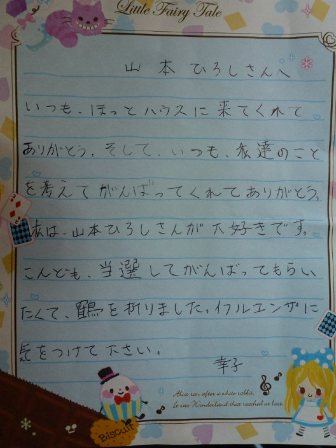 Little Fairy Tale
山本ひろしさんへ
いつも、ほっとハウスに来てくれて
ありがとう。そして、いつも、私達のこと
を考えてがんばってくれてありがとう。
私は、山本ひろしさんが大好きです。
こんども、当選してがんばってもらい
たくて、鶴を折りました。イフルエンザに
気をつけて下さい。
幸子
Alice ran after a white rabbit,
Biscuit